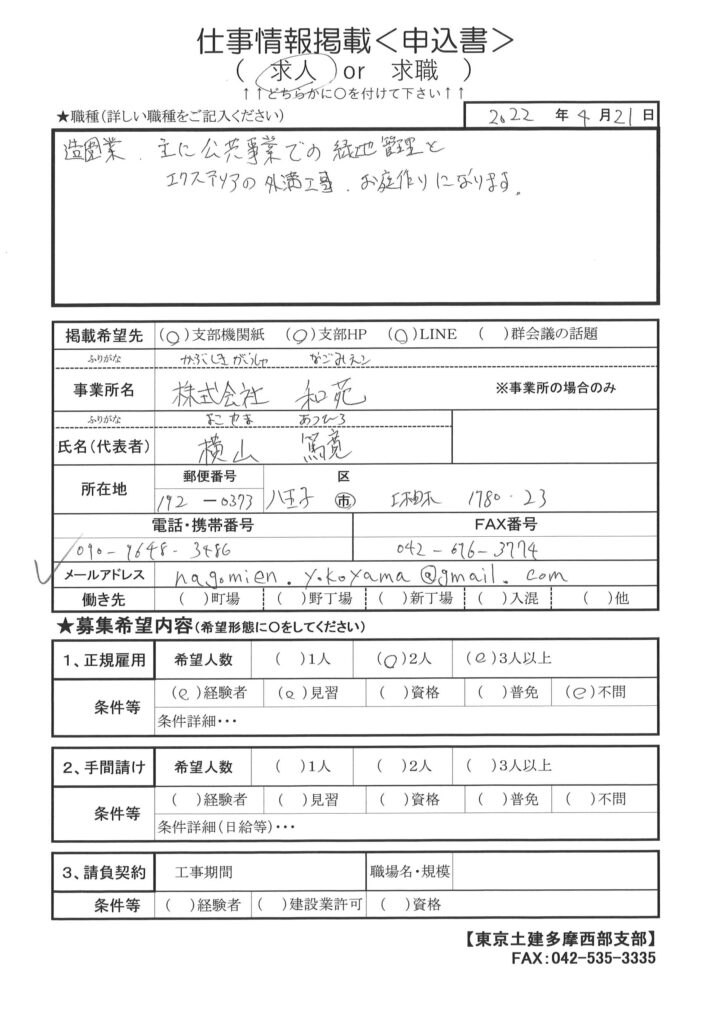 仕事情報掲載＜申込書＞
（ 求人 ）or 求職 ）
↑↑どちらかに○を付けて下さい↑↑
★職種（詳しい職種をご記入ください） 2022 年 4 月 21 日
造園業、主に公共事業での緑地管理と
エクステリアの外溝工事、お庭作りになります。
掲載希望先 (○)支部機関紙 (○)支部HP (○)LINE ( )群会議の話題
ふりがな かぶしきがいしゃ なごみえん
事業所名 株式会社 和苑 ※事業所の場合のみ
ふりがな よこやま あつひろ
氏名（代表者） 横山 篤寛
所在地 郵便番号 区
192 -0373 八王子 市 1780-23
電話・携帯番号 FAX番号
090-9648-3486 042-676-3774
メールアドレス nagomien.yokoyama@gmail.com
働き先 ( )町場 ( )野丁場 ( )新丁場 ( )入混 ( )他
★募集希望内容（希望形態に○をしてください）
1、正規雇用 希望人数 ( )1人 (○)2人 (○)3人以上
条件等 (○)経験者 (○)見習 ( )資格 ( )普免 (○)不問
条件詳細・・・
2、手間請け 希望人数 ( )1人 ( )2人 ( )3人以上
条件等 ( )経験者 ( )見習 ( )資格 ( )普免 ( )不問
条件詳細（日給等）・・・
3、請負契約 工事期間 職場名・規模
条件等 ( )経験者 ( )建設業許可 ( )資格
【東京土建多摩西部支部】
FAX：042-535-3335